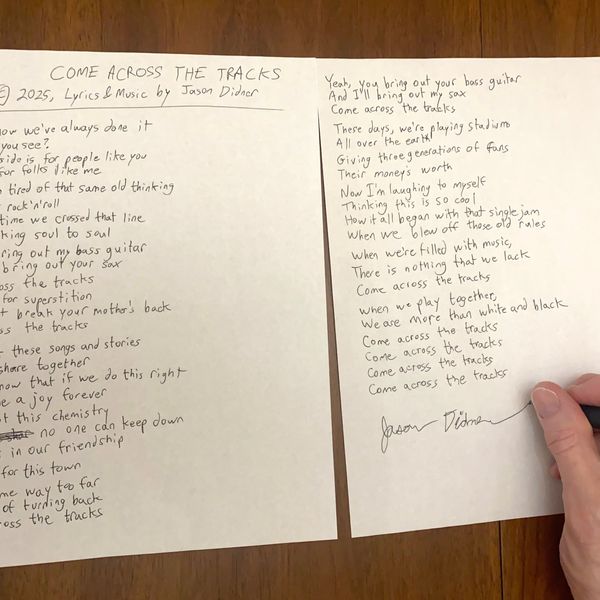 COME ACROSS THE TRACKS
© 2025, Lyrics & Music by Jason Didner
how we've always done it
you see?
side is for people like you
for folks like me
tired of that same old thinking
rock'n'roll
time we crossed that line
king soul to soul
ring out my bass guitar
bring out your sax
oss the tracks
for superstition
t break your mother's back
ss the tracks
these songs and stories
share together
now that if we do this right
e a joy forever
t this chemistry
no one can keep down
in our friendship
for this town
me way too far
of turning back
oss the tracks
Yeah, you bring out your bass guitar
And I'll bring out my sax
Come across the tracks
These days, we're playing stadiums
All over the earth
Giving three generations of fans
Their money's worth
Now I'm laughing to myself
Thinking this is so cool
How it all began with that single jam
When we blew off those old rules
When we're filled with music,
There is nothing that we lack
Come across the tracks
When we play together,
We are more than white and black
Come across the tracks
Come across the tracks
Come across the tracks
Come across the tracks
Jason Didner